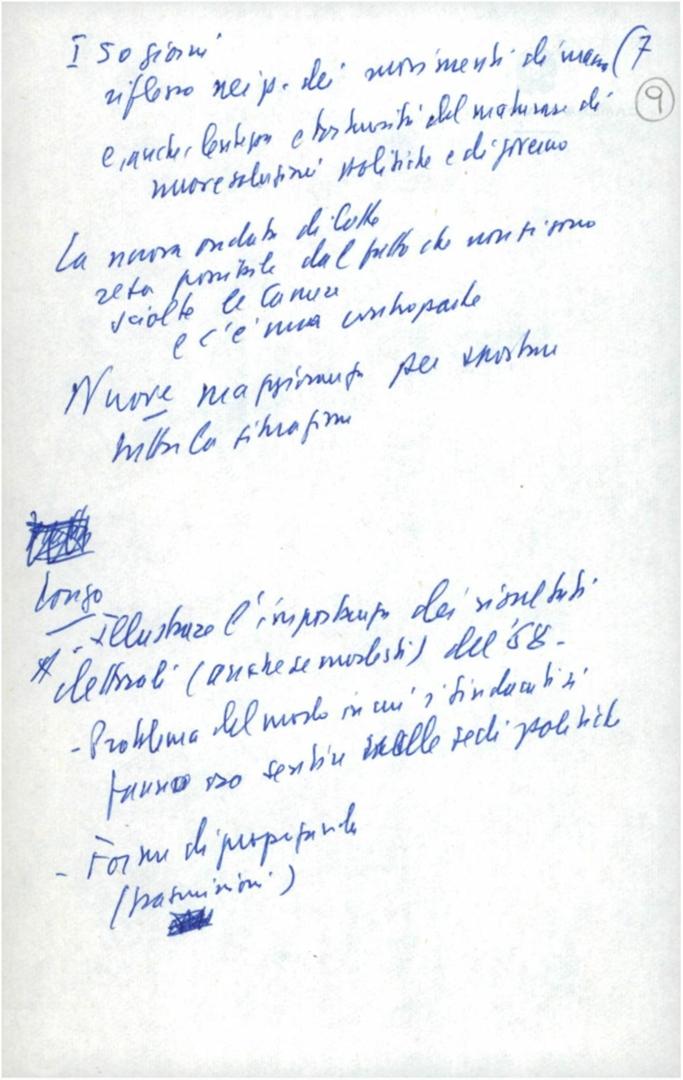 I 50 giorni (7
riflesso nei p. dei movimenti di massa 9
e, anche, lentezza e tortuosità del maturare di
nuove soluzioni politiche e di governo
La nuova ondata di lotte
resa possibile dal fatto che non si sono
sciolte le Camere
e c'è una controparte
Nuove maggioranze per spostare
tutta la situazione
Longo
- Illustrare l'importanza dei risultati
elettorali (anche se modesti) del '68.
- Problema del modo in cui i sindacati si
fanno sentire nelle sedi politiche
- Forme di propaganda
(trasmissioni)